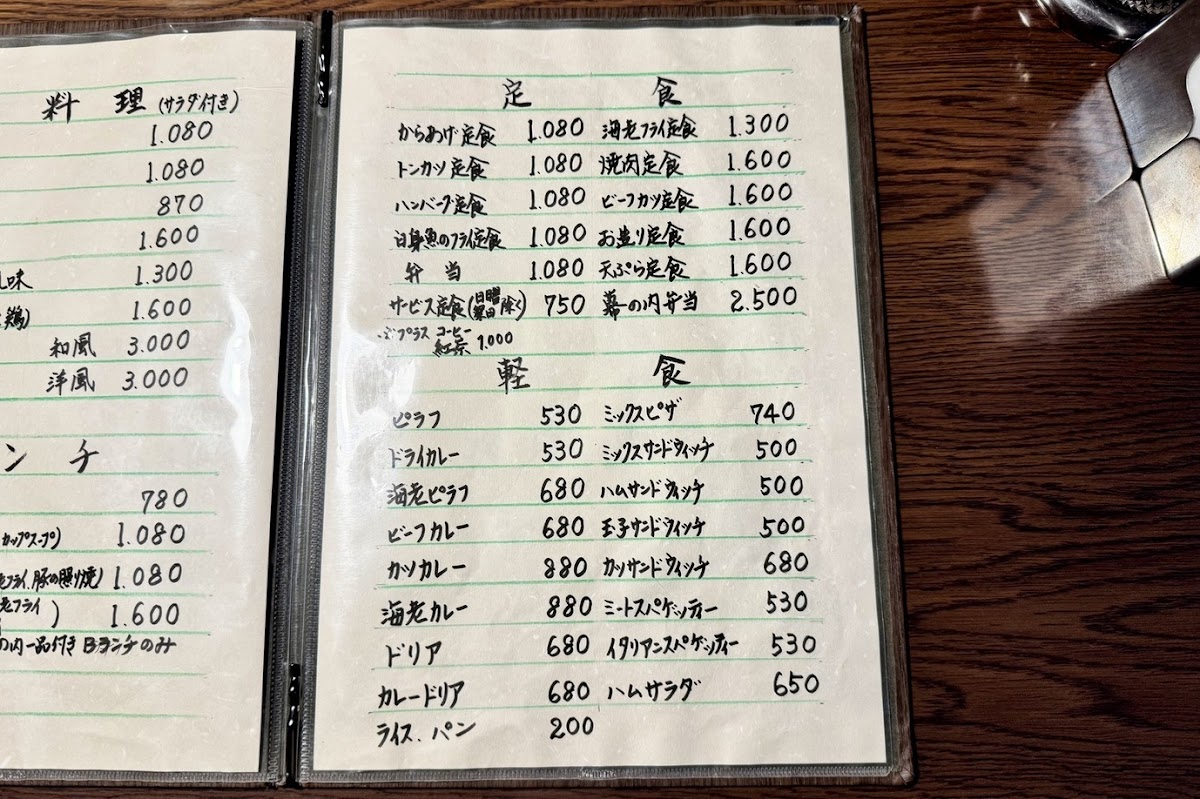 料 理 (サラダ付き)
1.080
1.080
870
1.600
味 1.300
鶏) 1.600
和風 3.000
洋風 3.000
ンチ
780
カップスープ) 1.080
フライ、豚の照り焼) 1.080
老フライ ) 1.600
の内一品付き Bランチのみ
定 食
からあげ定食 1.080 海老フライ定食 1.300
トンカツ定食 1.080 焼肉定食 1.600
ハンバーグ定食 1.080 ビーフカツ定食 1.600
白身魚のフライ定食 1.080 お造り定食 1.600
弁 当 1.080 天ぷら定食 1.600
サービス定食(日曜 祭日 除く) 750 幕の内弁当 2.500
プラス コーヒー 紅茶 1.000
軽 食
ピラフ 530 ミックスピザ 740
ドライカレー 530 ミックスサンドウィッチ 500
海老ピラフ 680 ハムサンドウィッチ 500
ビーフカレー 680 玉子サンドウィッチ 500
カツカレー 880 カツサンドウィッチ 680
海老カレー 880 ミートスパゲッティー 530
ドリア 680 イタリアンスパゲッティー 530
カレードリア 680 ハムサラダ 650
ライス、パン 200